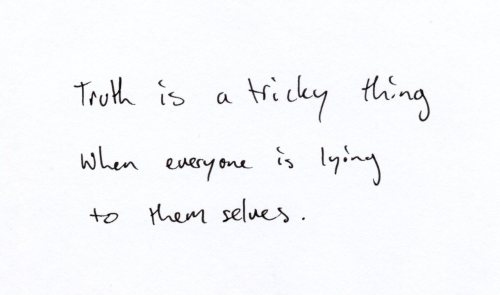 Truth is a tricky thing
When everyone is lying
to them selves.